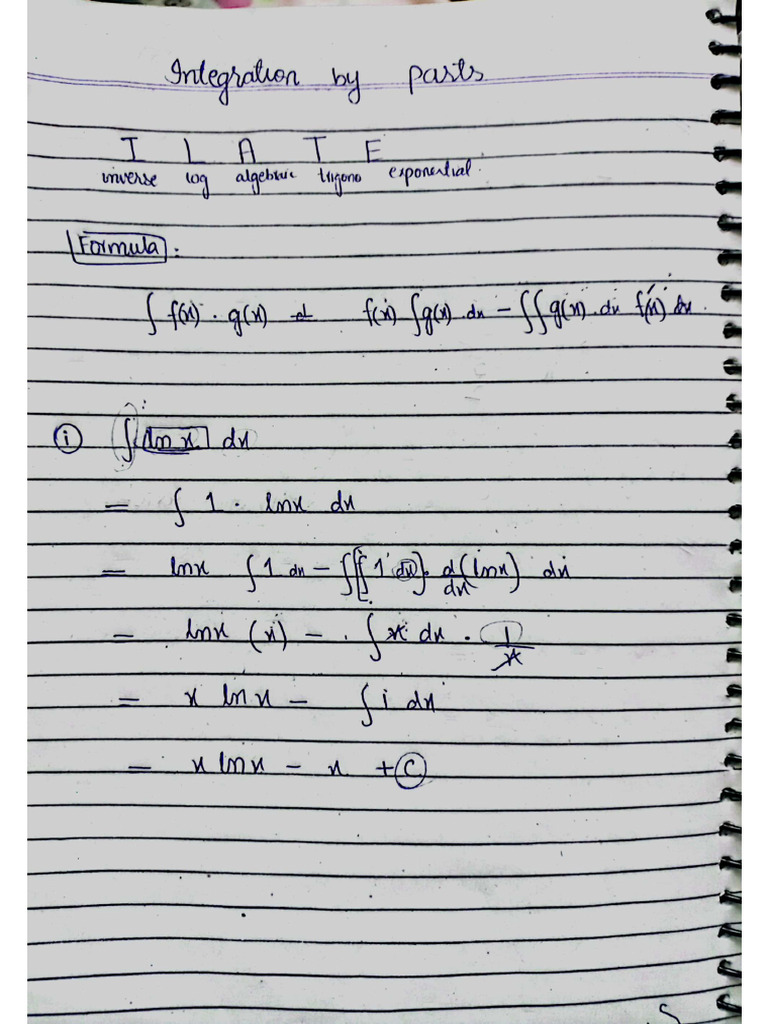 Integration by parts
I L A T E
inverse log algebraic trigono exponential.
Formula :
∫ f(x) · g(x) d f(x) ∫g(x) dx - ∫∫g(x) dx f'(x) dx.
(i) ∫ ln x dx
= ∫ 1 · lnx dx
= lnx ∫ 1 dx - ∫[∫ 1 dx]. d/dx (lnx) dx
= lnx (x) - ∫ x dx . 1/x
= x ln x - ∫ 1 dx
= x lnx - x + C